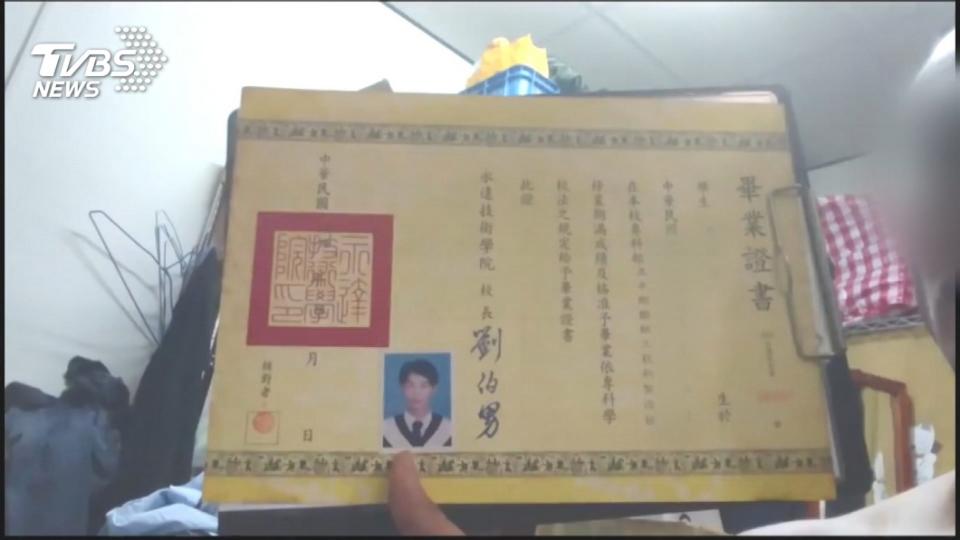 TVBS
NEWS
畢業證書
學生
生於
中華民國
在本校專科部
修業期滿成績及格准予畢業依專科學
校法之規定給予畢業證書
此證
永達技術學院 校長 劉伯男
中華民國
月
日
永達
技術學
院印
核對者